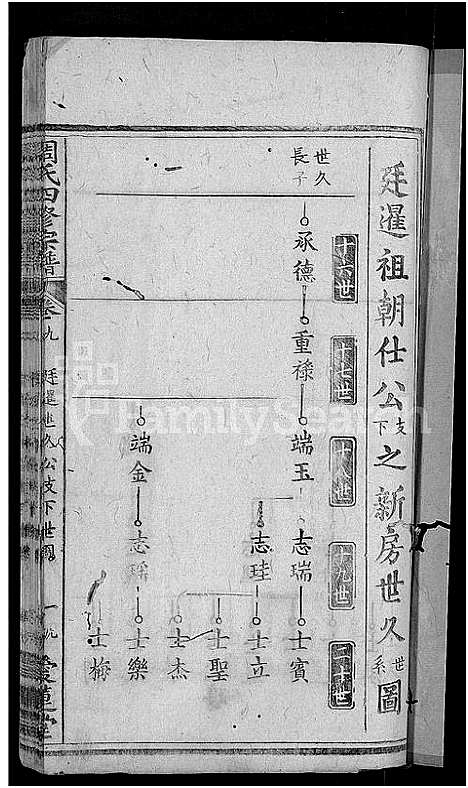 廷暹祖朝仕公支下之新房世久世系圖
十六世
十七世
十八世
十九世
二十世
世久長子
承德
重祿
端玉
志瑞
士賓
志珪
士立
士聖
士杰
端金
志瑶
士樂
士梅
周氏四修宗譜
卷九
廷暹世久公支下世圖
一九
愛蓮堂
FamilySearch